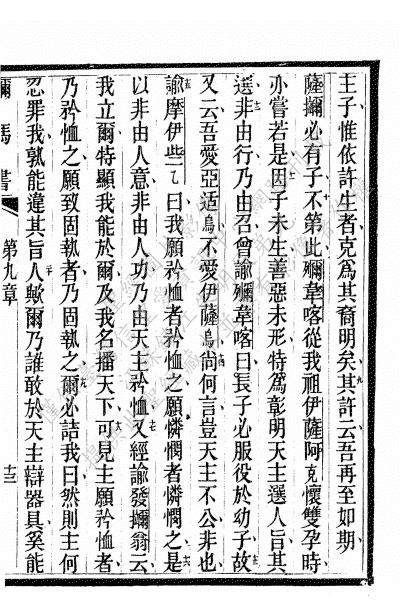 主子惟依許生者克為其裔明矣其許云吾再至如期
薩攡必有子不第此殢韋喀從我祖伊薩阿克懷雙孕時
亦嘗若是因子未生善惡未形特為彰明天主選人旨其
選非由行乃由召曾諭殢韋喀曰長子必服役於幼子故
又云吾愛亞適烏不愛伊薩烏尚何言豈天主不公非也
諭摩伊些乙曰我願矜恤者矜恤之願憐憫者憐憫之是
以非由人意非由人功乃由天主矜恤又經諭發攡翁云
我立爾特顯我能於爾及我名播天下可見主願矜恤者
乃矜恤之願致固執者乃固執之爾必詰我曰然則主何
怨罪我孰能違其旨人歟爾乃誰敢於天主辯器具奚能
馬書
第九章
十三